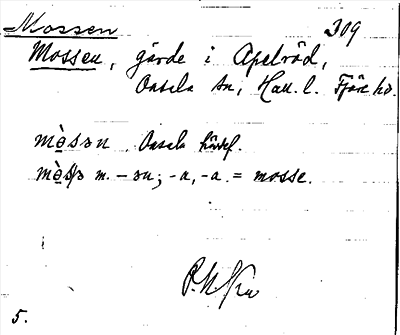 Mossen 309
Mossen, gärde i Apelröd,
Onsala sn, Hall. l. Fjäre hd.
mòsən . Onsala härkf.
mòsə m. – ən; -a, -a = mosse.
5.